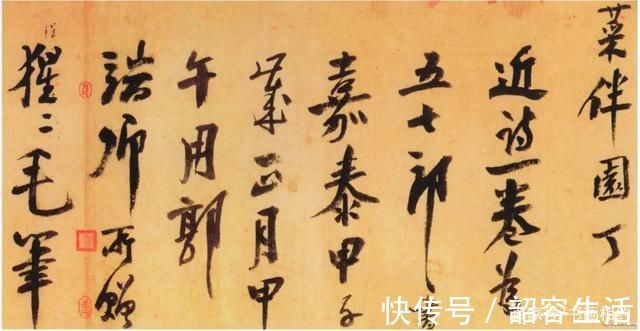 菜伴園丁
近詩一卷為
五七郎書
嘉泰甲子
歲正月甲
午用郭
端卿所贈
猩〻毛筆
快传号 / 韶容生活